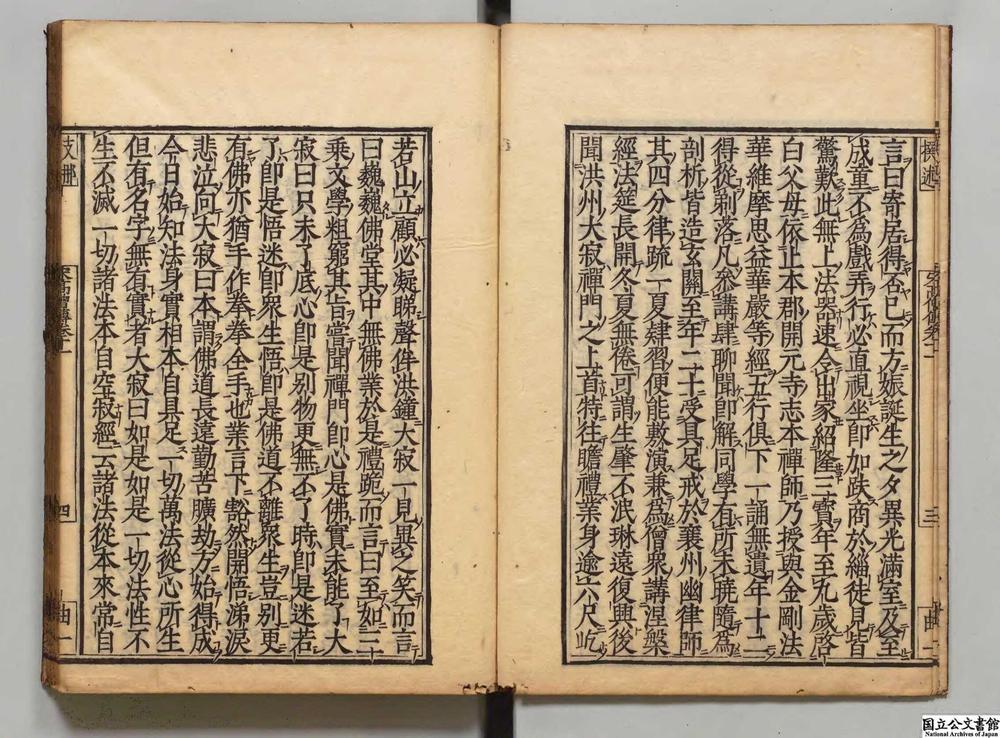 撰述
三
言曰寄居得否已而方娠誕生之夕異光滿室及至
成童不爲戲弄行必直視坐即加趺商於緇徒見皆
驚歎此無上法器速令出家紹隆三寶年至九歲啓
白父母依止本郡開元寺志本禪師乃授與金剛法
華維摩思益華嚴等經五行俱下一誦無遺年十二
得從剃落凡參講肆聊聞即解同學有所未曉隨爲
剖析皆造玄關至年二十受具足戒於襄州幽律師
其四分律疏一夏肄習便能敷演兼爲僧衆講涅槃
經法筵長開冬夏無倦可謂生肇不泯琳遠復興後
聞洪州大寂禪門之上首特往瞻禮業身逾六尺屹
若山立顧必凝睇聲侔洪鐘大寂一見異之笑而言
曰巍巍佛堂其中無佛業於是禮跪而言曰至如三
乘文學粗窮其旨嘗聞禪門即心是佛實未能了大
寂曰只未了底心即是别物更無不了時即是迷若
了即是悟迷即衆生悟即是佛道不離衆生豈别更
有佛亦猶手作拳拳全手也業言下豁然開悟涕淚
悲泣向大寂曰本謂佛道長遠勤苦曠劫方始得成
今日始知法身實相本自具足一切萬法從心所生
但有名字無有實者大寂曰如是如是一切法性不
生不滅一切諸法本自空寂經云諸法從本來常自
支那
四
曲一
国立公文書館
National Archives of Japan